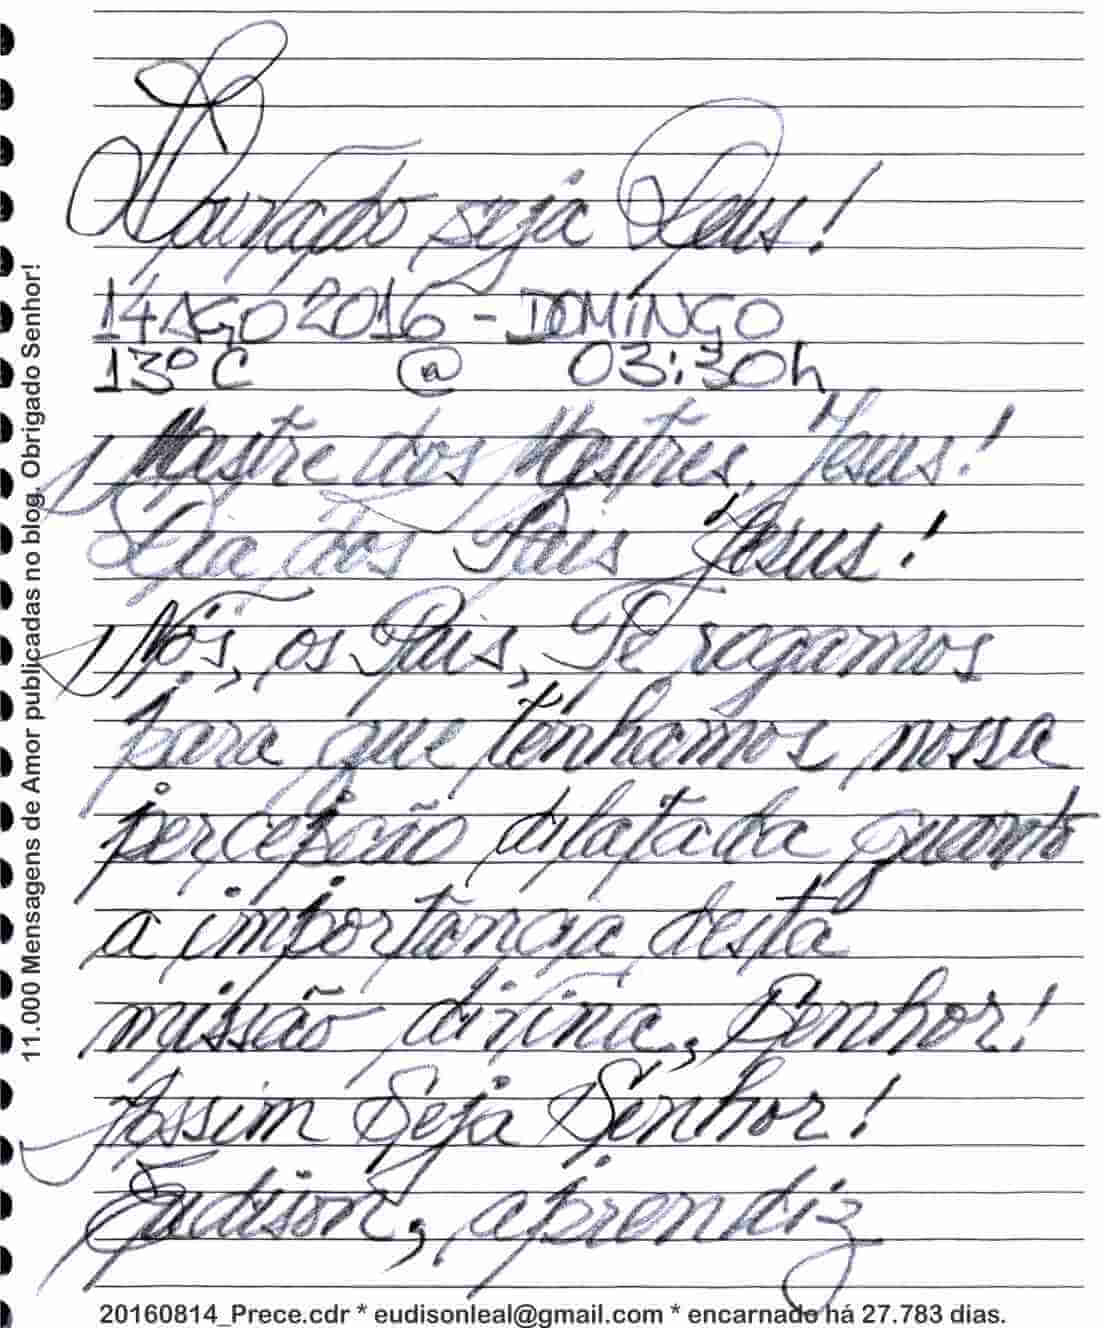 Louvado seja Deus!
14 AGO 2016 - DOMINGO
13°C @ 03:30h
Mestre dos Mestres, Jesus!
Dia dos Pais Jesus!
Nós, os Pais, Te rogamos
para que tenhamos nossa
percepção dilatada quanto
a importância desta
missão divina, Senhor!
Assim Seja Senhor!
Eudison, aprendiz
20160814_Prece.cdr * eudisonleal@gmail.com * encarnado há 27.783 dias.
11.000 Mensagens de Amor publicadas no blog. Obrigado Senhor!